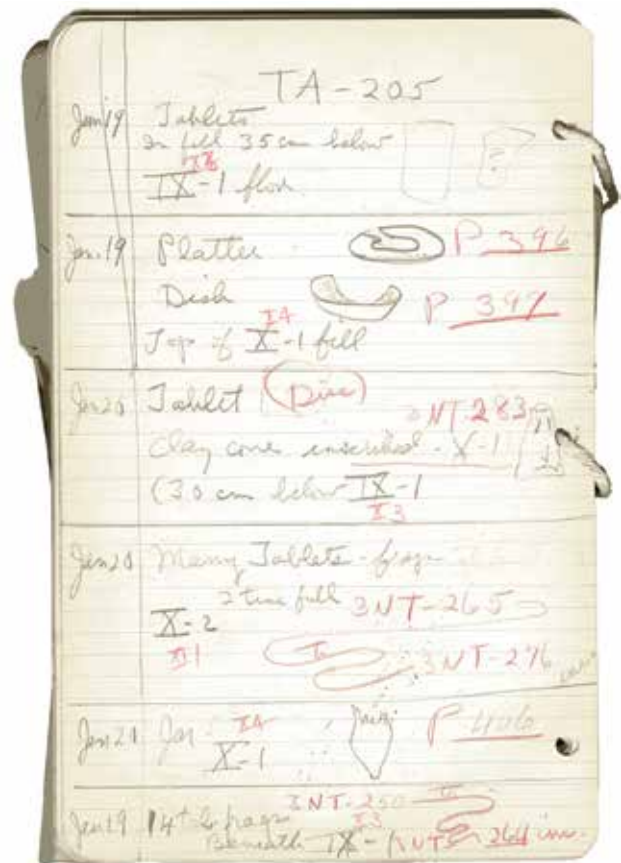 TA-205
Jan 19 Tablets
In fill 35 cm below
IX-1 floor
Jan. 19 Platter P 396
Dish P 397
X4
Top of X-1 fill
Jan 20 Tablet (Disc)
3NT-283
Clay cone inscribed - X-1
(30 cm below IX-1
X3
Jan 20 Many Tablets - frags
fill 3NT-265
X-2
XI1
3NT-276
Jan 21 Jar X4
X-1 P 406
Jan 19 14 + 6 frags 3NT-250
X3
Beneath IX-1